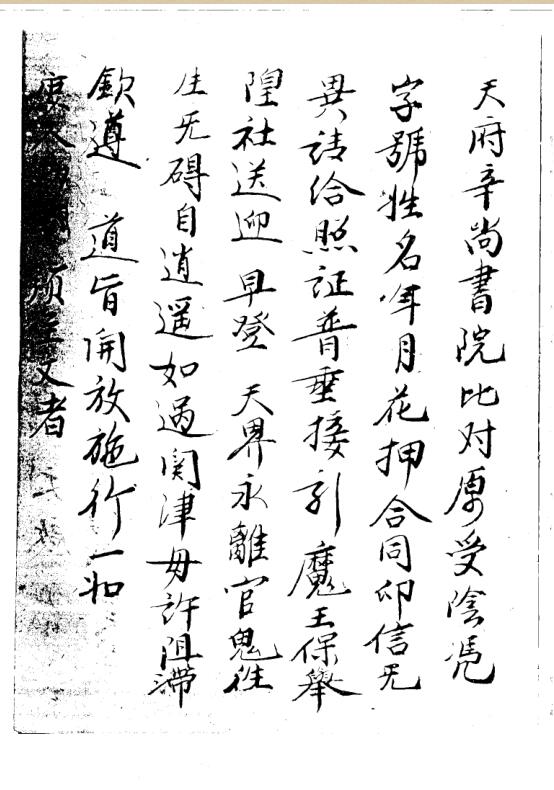 天府辛尚書院比对原受陰凴
字號姓名年月花押合同印信无
異请给照证普垂接引魔王保舉
隍社送迎早登天界永離官鬼徃
生无碍自逍遥如過関津毋許阻滞
欽遵道旨開放施行一如
者